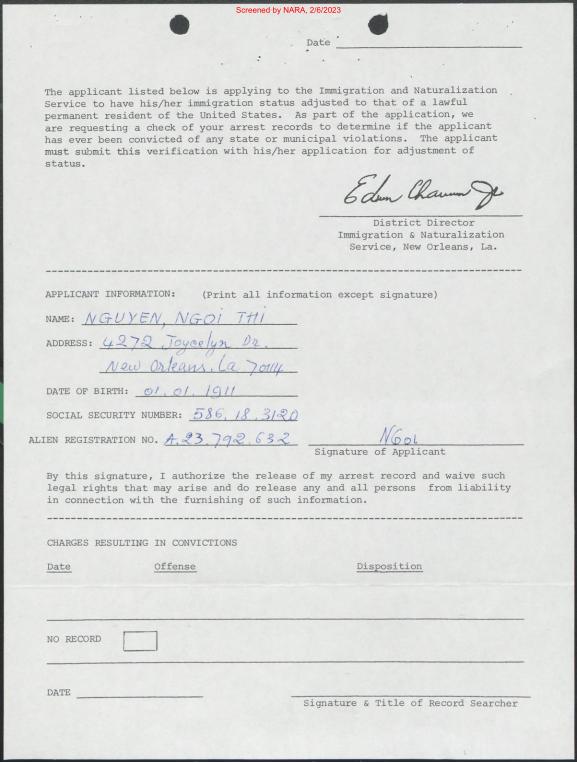 Screened by NARA, 2/6/2023
Date
The applicant listed below is applying to the Immigration and Naturalization
Service to have his/her immigration status adjusted to that of a lawful
permanent resident of the United States. As part of the application, we
are requesting a check of your arrest records to determine if the applicant
has ever been convicted of any state or municipal violations. The applicant
must submit this verification with his/her application for adjustment of
status.
District Director
Immigration & Naturalization
Service, New Orleans, La.
APPLICANT INFORMATION: (Print all information except signature)
NAME: NGUYEN, NGOI THI
ADDRESS: 4272 Joycelyn Dr.
New Orleans, La 70114
DATE OF BIRTH: 01.01.1911
SOCIAL SECURITY NUMBER: 586.18.3120
ALIEN REGISTRATION NO. A.23.792.632 NGOI
Signature of Applicant
By this signature, I authorize the release of my arrest record and waive such
legal rights that may arise and do release any and all persons from liability
in connection with the furnishing of such information.
CHARGES RESULTING IN CONVICTIONS
Date Offense Disposition
NO RECORD
DATE
Signature & Title of Record Searcher